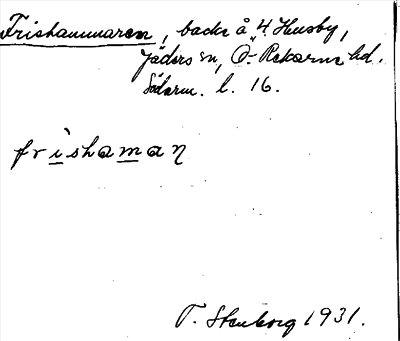 Frishammaren, backe å 4. Husby,
Jäders sn, Ö-Rekarne hd.
Söderm. l. 16.
frishaman
T. Stenborg 1931.